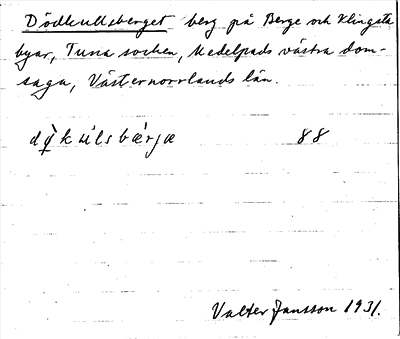 Dödkullsberget berg på Berge och Klingsta
byar, Tuna socken, Medelpads västra dom-
saga, Västernorrlands län.
88
Valter Jansson 1931.